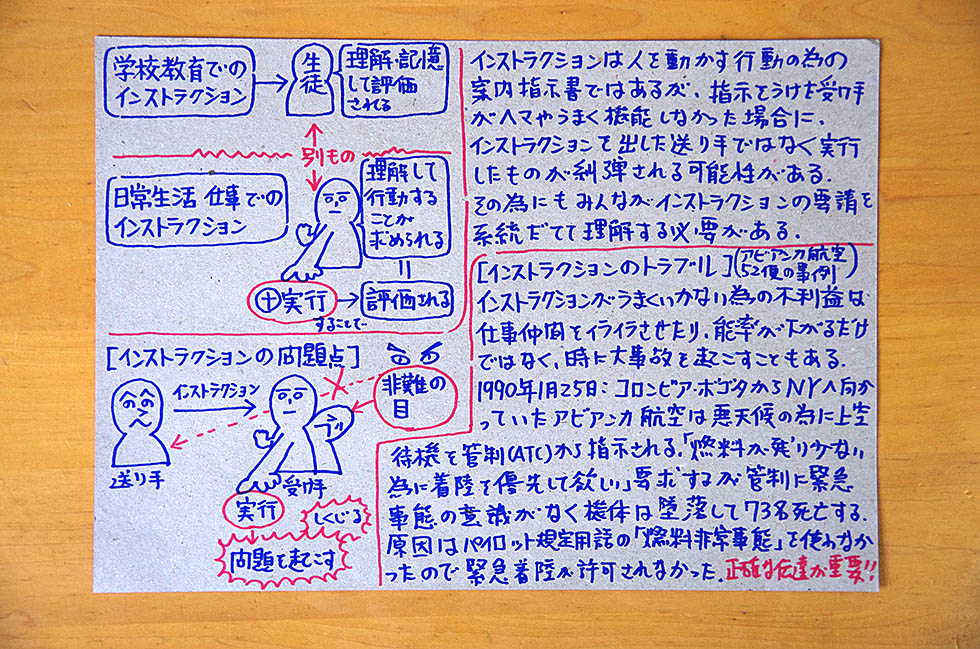 学校教育での
インストラクション
生徒
理解・記憶
して評価
される
別もの
日常生活 仕事での
インストラクション
理解して
行動する
ことが
求められる
＝
⊕実行
することで
評価される
[インストラクションの問題点]
インストラクション
非難の
目
送り手
受け手
実行
しくじる
問題を起こす
インストラクションは人を動かす行動の為の
案内指示書ではあるが、指示をうけた受け手
がヘマやうまく機能しなかった場合に、
インストラクションを出した送り手ではなく実行
したものが糾弾される可能性がある.
その為にもみんながインストラクションの要請を
系統だてて理解する必要がある.
[インストラクションのトラブル] (アビアンカ航空
52便の事例)
インストラクションがうまくいかない為の不利益は
仕事仲間をイライラさせたり、能率が下がるだけ
ではなく、時に大事故を起こすこともある.
1990年1月25日: コロンビア・ボゴタからNYへ向か
っていたアビアンカ航空は悪天候の為に上空
待機を管制(ATC)から指示される.「燃料が残り少ない
為に着陸を優先して欲しい」要求するが管制に緊急
事態の意識がなく機体は墜落して73名死亡する.
原因はパイロット規定用語の「燃料非常事態」を使わなか
ったので緊急着陸が許可されなかった. 正確な伝達が重要!!